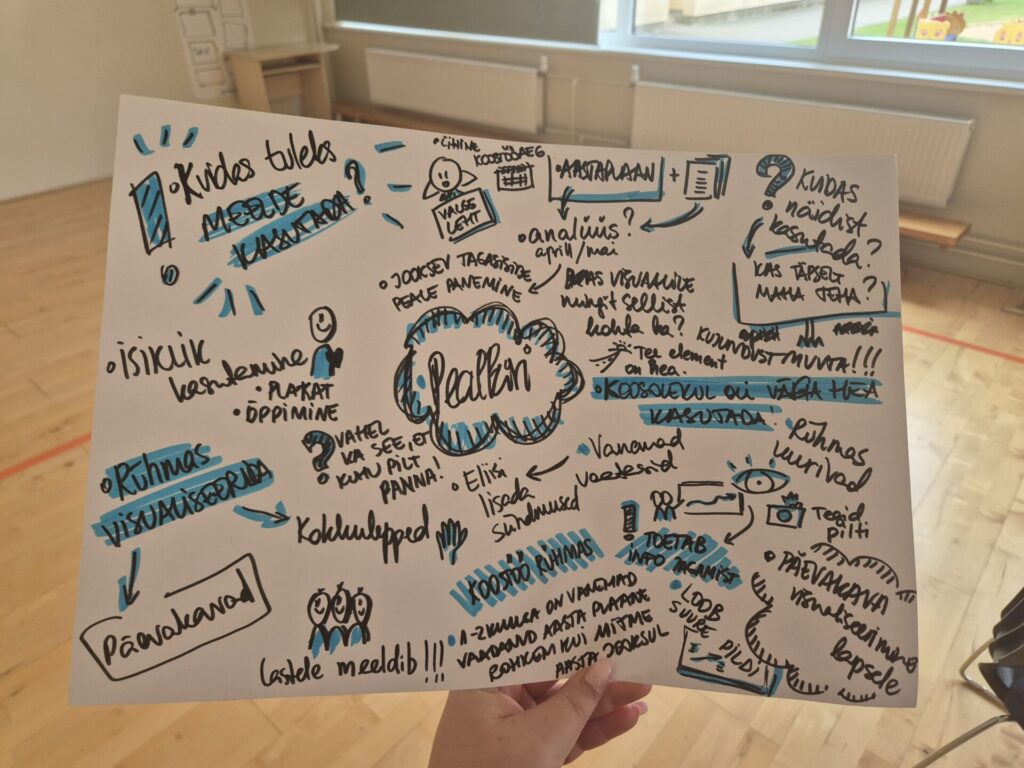 • Kuidas tuleks
MEELDE
KASUTADA?
• ÜHINE
KOOSTÖÖAEG
VALGE
LEHT
• AASTAPLAAN +
• analüüs?
aprill/mai
• JOOKSEV TAGASISIDE
PEALE PANEMINE
? KUIDAS
näidist
kasutada?
KAS TÄPSELT
MAHA TEHA?
VISUAALIDE
mingit sellist
kohta ka?
KUJUNDUST MUUTA!!!
Tee element
on hea.
• KOOSOLEKUL OLI VÄGA HEA
KASUTADA!
Pealkiri
• ISIKLIK
kasutamine
• PLAKAT
• ÕPPIMINE
? VAHEL
KA SEE, ET
KUHU PILT
PANNA!
• Vanemad
vaatasid
• Elisi
lisada
sündmused
• Rühmas
uurivad
Teevad
pilti
• RÜHMAS
VISUALISEERIDA
Kokkulepped
Päevakavad
Lastele meeldib!!!
KOOSTÖÖ RÜHMAS
• 1-2 KUUGA ON VANEMAD
VAADANUD AASTA PLAANE
ROHKEM KUI MITME
AASTA JOOKSUL
! TOETAB
INFO JAGAMIST
• LOOB
SUURE
PILDI
• PÄEVAKAVA
visualiseerimine
lapsele